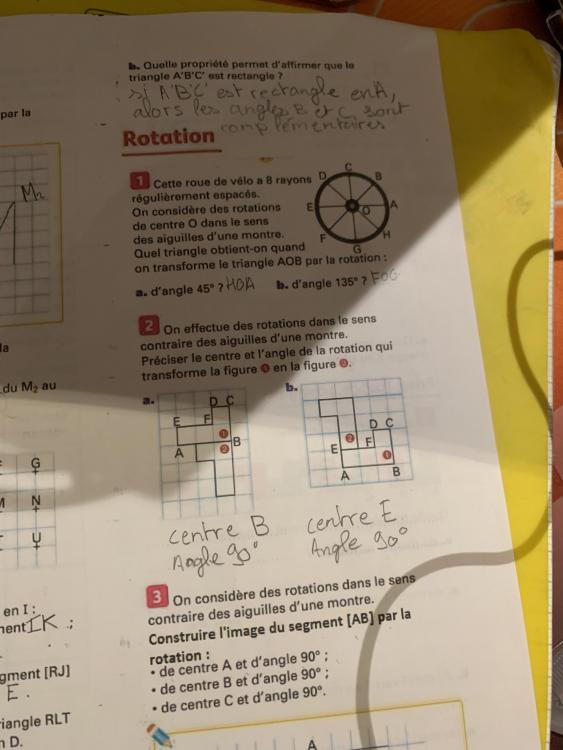 b. Quelle propriété permet d'affirmer que le
triangle A'B'C' est rectangle ?
si A'B'C' est rectangle en A,
alors les angles B et C sont
complémentaires
par la
Rotation
M2
1 Cette roue de vélo a 8 rayons
régulièrement espacés.
On considère des rotations
de centre O dans le sens
des aiguilles d'une montre.
Quel triangle obtient-on quand
on transforme le triangle AOB par la rotation :
C
D B
E O A
F H
G
a. d'angle 45° ? HOA b. d'angle 135° ? FOG
2 On effectue des rotations dans le sens
contraire des aiguilles d'une montre.
Préciser le centre et l'angle de la rotation qui
transforme la figure 1 en la figure 2.
la
du M2 au
a.
D C
E F
1
A 2 B
b.
D C
2 F
E 1
A B
G
N
U
centre B
Angle 90°
centre E
Angle 90°
3 On considère des rotations dans le sens
contraire des aiguilles d'une montre.
Construire l'image du segment [AB] par la
rotation :
• de centre A et d'angle 90° ;
• de centre B et d'angle 90° ;
• de centre C et d'angle 90°.
en I :
ment IK ;
gment [RJ]
E.
riangle RLT
n D.
A